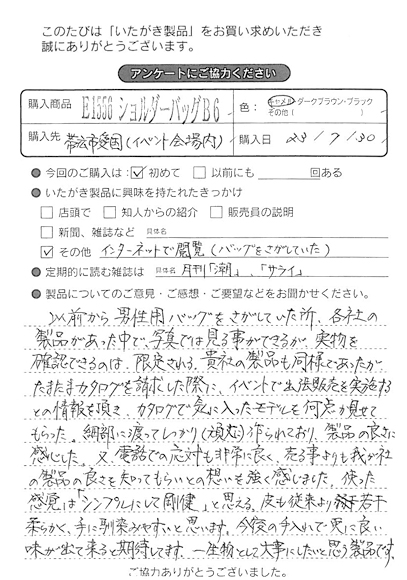 このたびは「いたがき製品」をお買い求めいただき
誠にありがとうございます。
アンケートにご協力ください
購入商品 E1556 ショルダーバッグB6 色: キャメル・ダークブラウン・ブラック
その他( )
購入先 (イベント会場内) 購入日 23/7/30
● 今回のご購入は: ☑ 初めて □ 以前にも 回ある
● いたがき製品に興味を持たれたきっかけ
□ 店頭で □ 知人からの紹介 □ 販売員の説明
□ 新聞、雑誌など 具体名
☑ その他 インターネットで閲覧(バッグをさがしていた)
● 定期的に読む雑誌は 具体名 月刊「潮」、「サライ」
● 製品についてのご意見・ご感想・ご要望などをお聞かせください。
以前から男性用バッグをさがしていた所、各社の
製品があった中で、写真では見る事ができるが、実物を
確認できるのは、限定される。貴社の製品も同様であったが
たまたまカタログを請求した際に、イベントで出張販売を実施する
との情報を頂き、カタログで気に入ったモデルを何点か見せて
もらった。細部に渡ってしっかり(頑丈)作られており、製品の良さに
感心した。又、電話での応対も非常に良く、売る事よりも我が社
の製品の良さを知ってもらいとの想いを強く感じました。使った
感覚は「シンプルにして剛健」と思える。皮も従来より若干
柔らかく、手に馴染みやすいと思います。今後の手入れで更に良い
味が出て来ると期待してます。一生物として大事にしたいと思う製品です。
ご協力ありがとうございました。